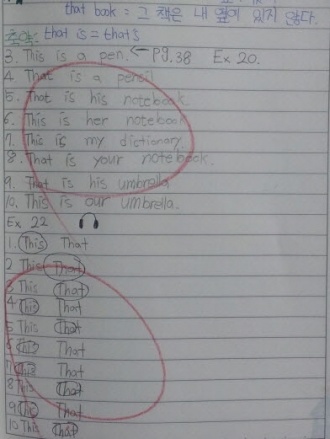 that book : 그 책은 내 옆에 있지 않다.
that is = that's
3. This is a pen. ← pg.38 Ex 20.
4. That is a pencil
5. That is his notebook.
6. This is her notebook
7. This is my dictionary
8. That is your notebook.
9. That is his umbrella
10. This is our umbrella.
Ex 22
1. This That
2 This That
3 This That
4 This That
5 This That
6 This That
7 This That
8 This That
9 This That
10 This That